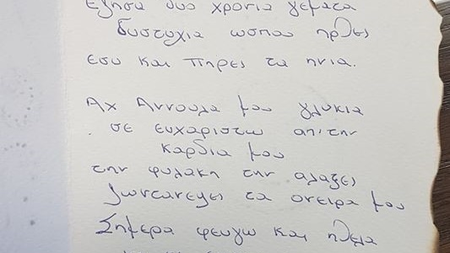 εζησα δυο χρονια γεματα
δυστυχια ωσπου ηρθες
εσυ και πηρες τα ηνια.
Αχ Αννουλα μου γλυκια
σε ευχαριστω απ'την
καρδια μου
την φυλακη την αλαξες
ζωντανεψες τα ονειρα μου
Σημερα φευγω και ηθελα